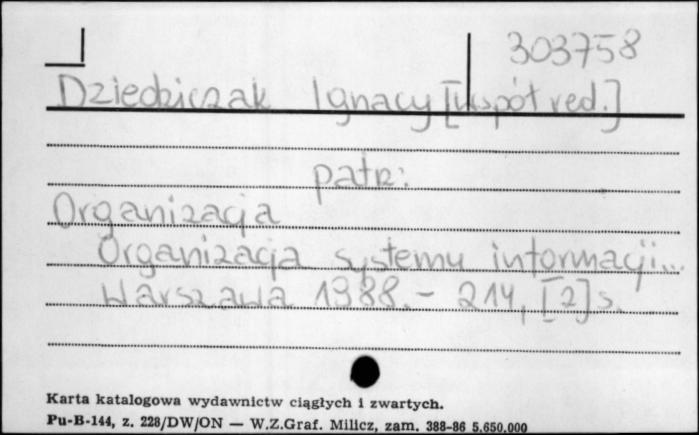 303758
Dziedziczak Ignacy [współred.]
patrz:
Organizacja
Organizacja systemu informacji...
Warszawa 1988.- 214, [2] s.
Karta katalogowa wydawnictw ciągłych i zwartych.
Pu-B-144, z. 228/DW/ON — W.Z.Graf. Milicz, zam. 388-86 5.650.000